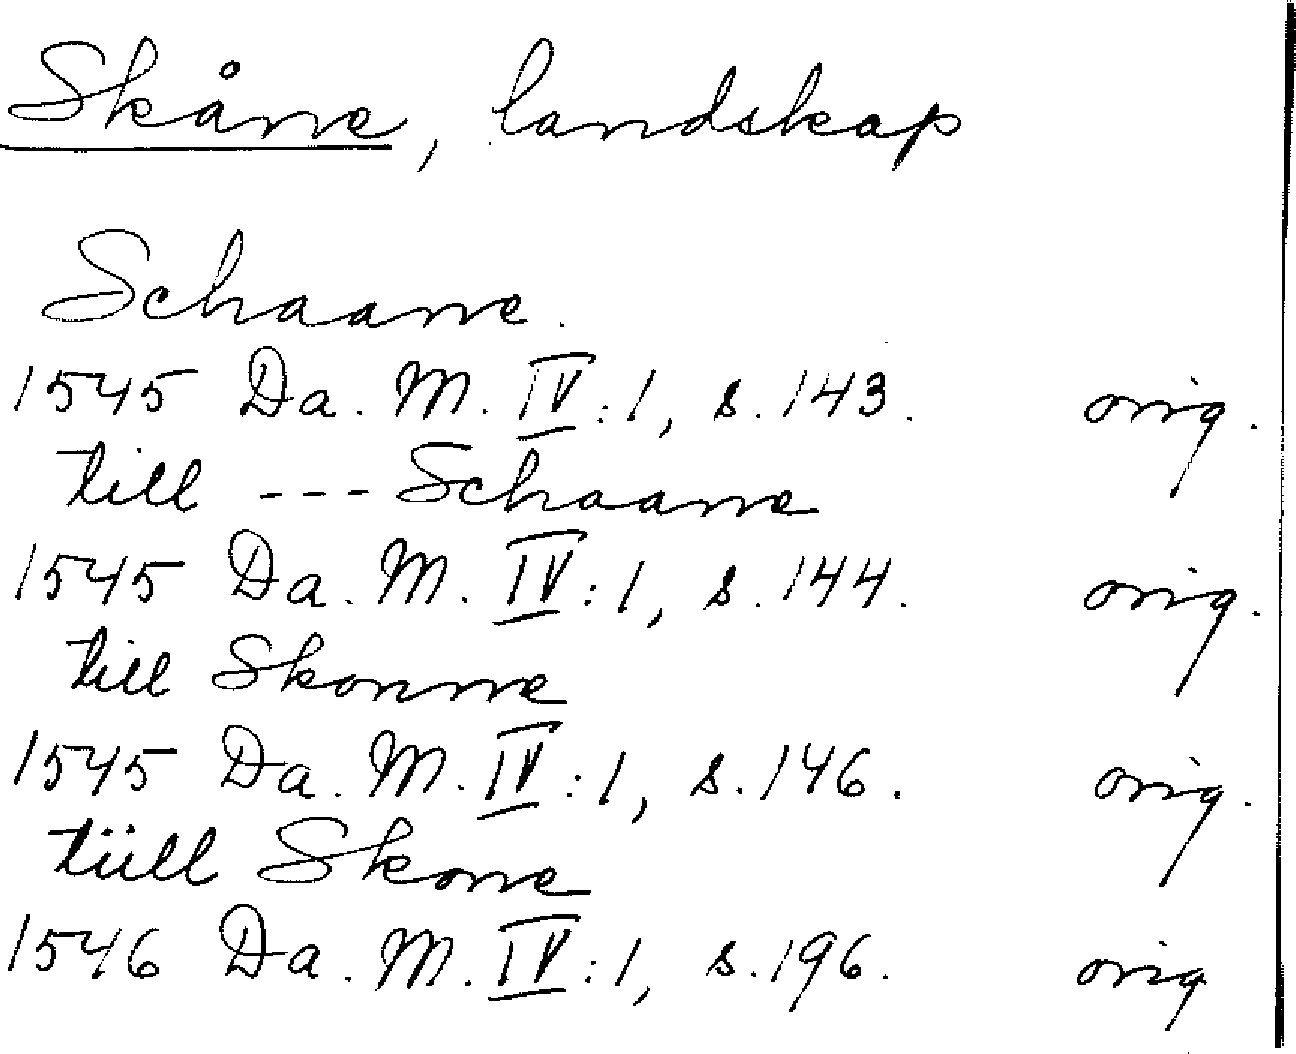 Skåne, landskap
Schaane.
1545 Da. M. IV:1, s. 143. orig.
till --- Schaane
1545 Da. M. IV:1, s. 144. orig.
till Skonne
1545 Da. M. IV:1, s. 146. orig.
tüll Skone
1546 Da. M. IV:1, s. 196. orig